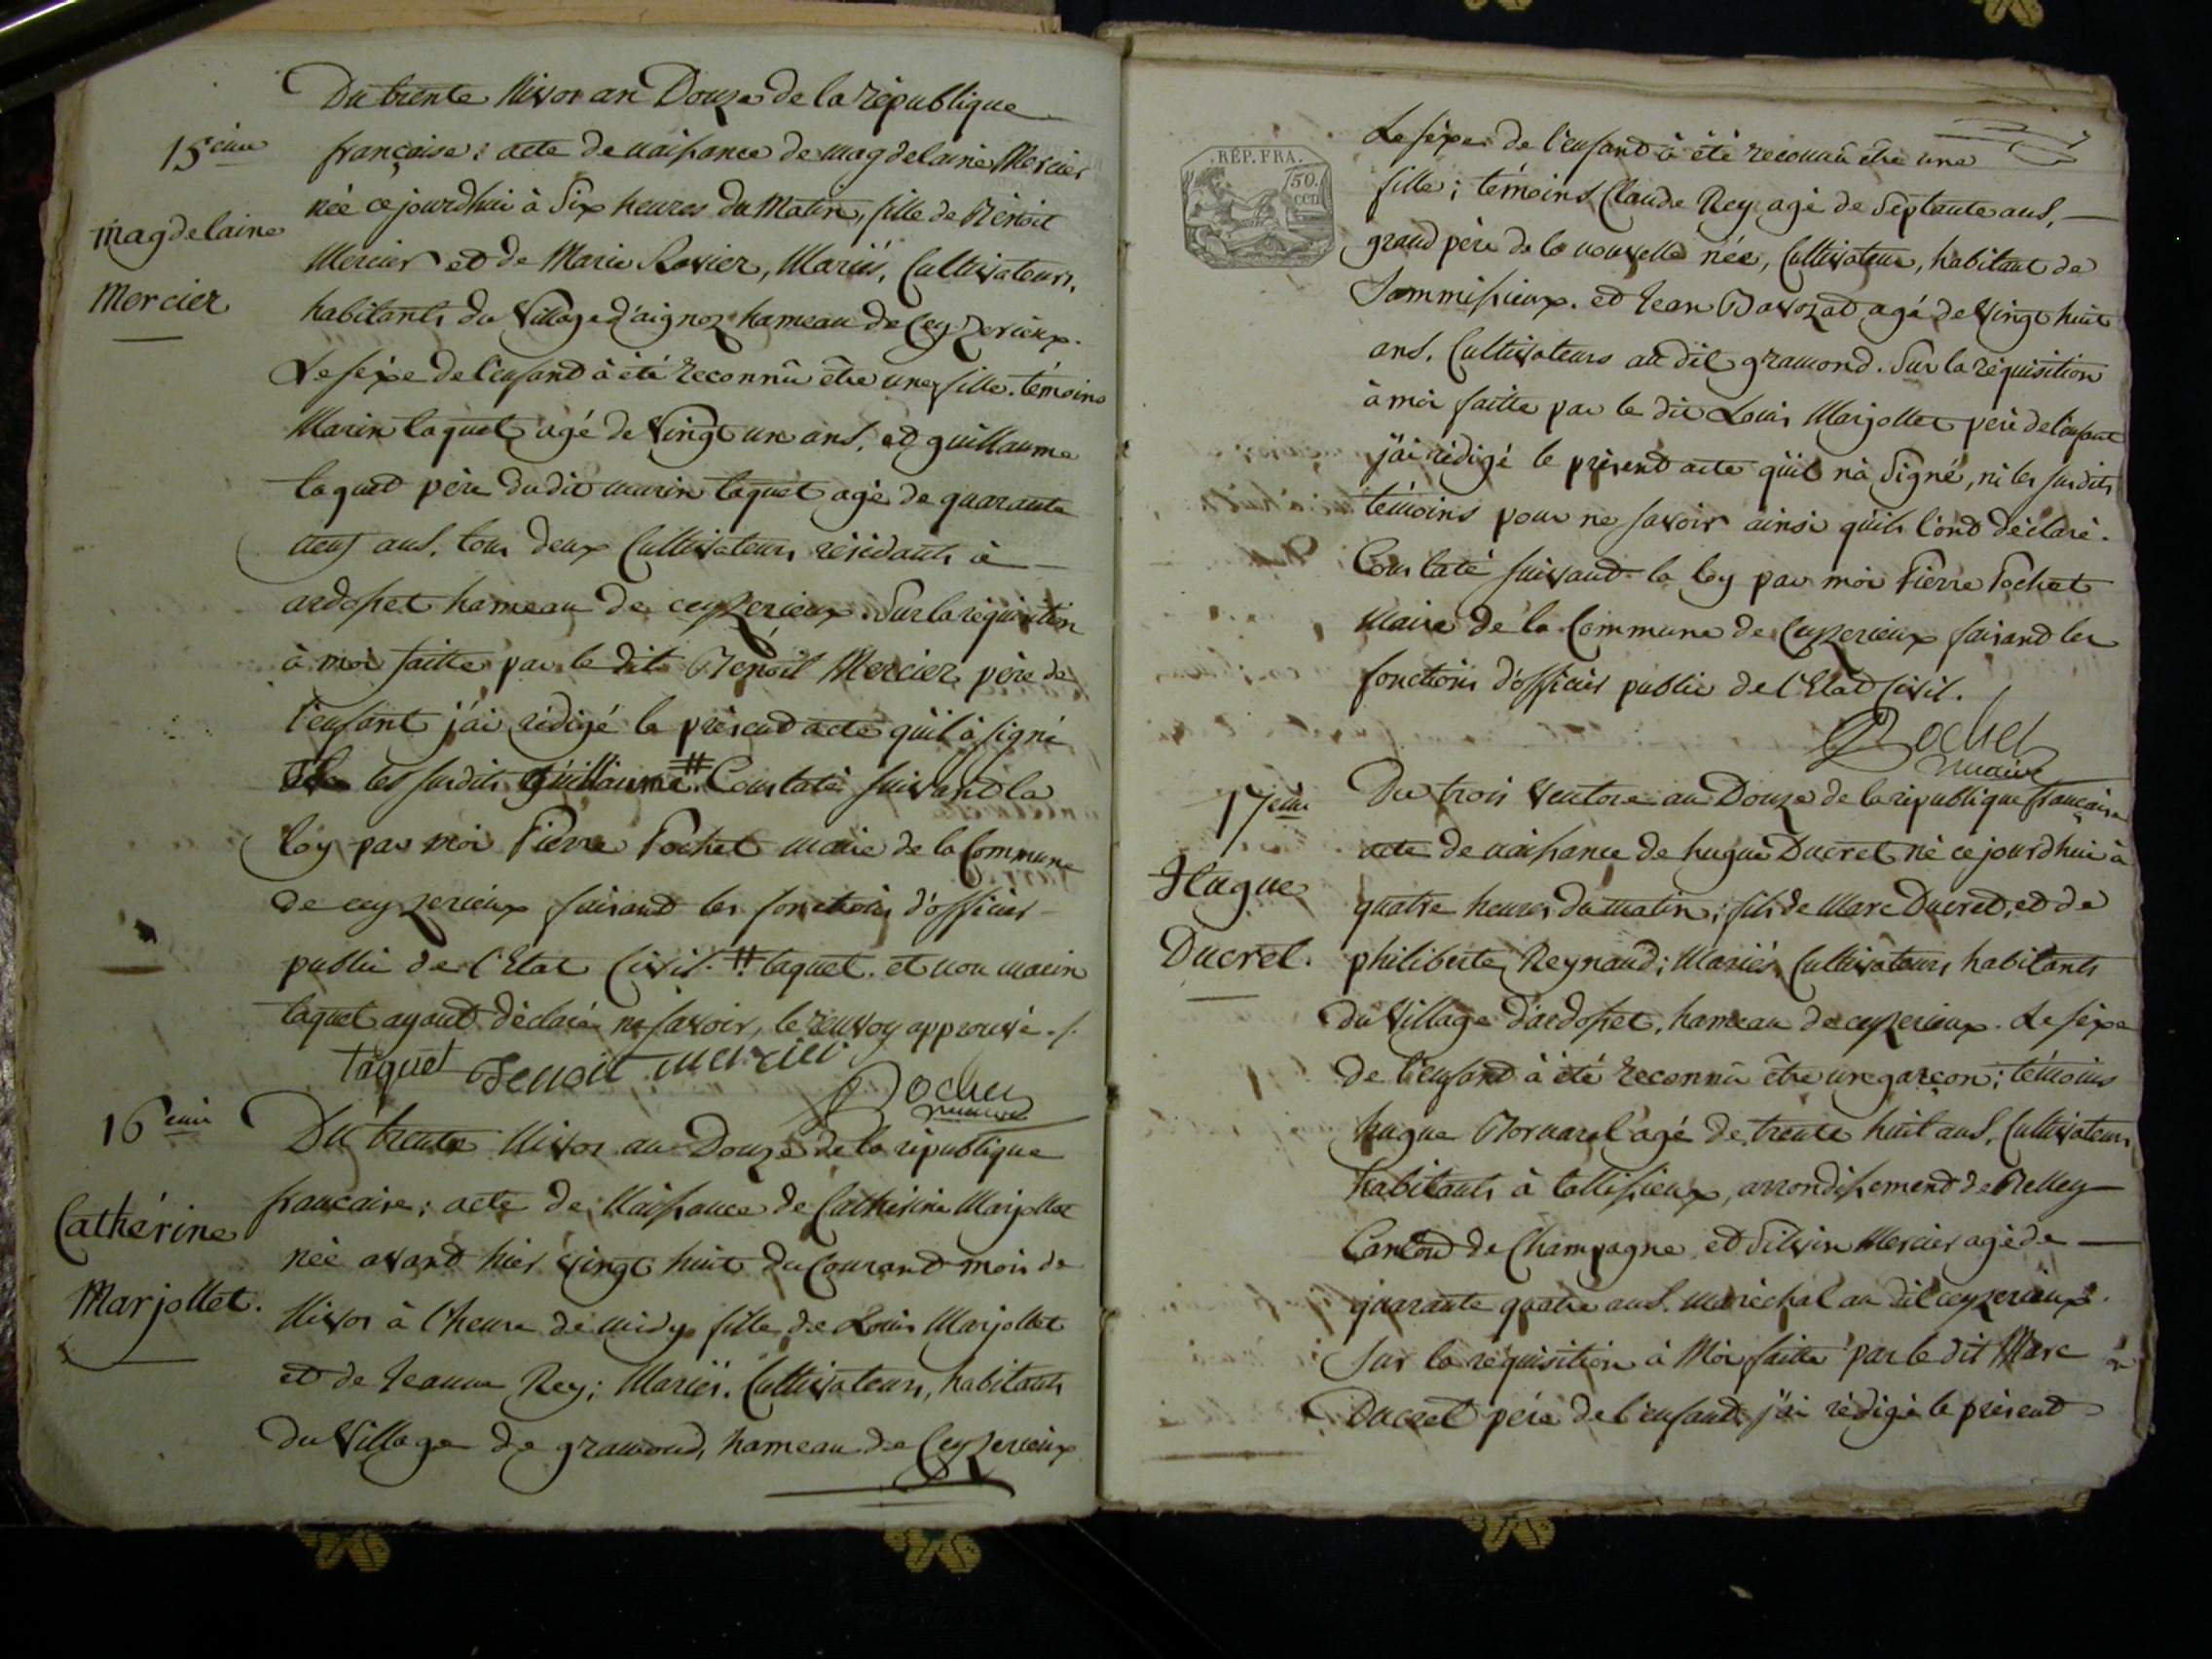 Du trente Nivos an Douze de la république
15eme
française : acte de naissance de magdelaine Mercier
née ce jourdhui à Six heures du Matin, fille de Benoit
Magdelaine
Mercier et de Marie Rovier, Mariés, Cultivateurs,
Mercier
habitants du Village d'aignoz hameau de Ceyzerieux.
Le séxe de l'enfant à été reconnû être une fille. témoins
Marin taquet agé de Vingt un ans, et guillaume
taquet père dudit marin taquet agé de quarante
neuf ans, tous deux Cultivateurs résidants à
ardosset hameau de ceyzerieux. Sur la réquisition
à moi faitte par le dit Benoit Mercier père de
l'enfant j'ai rédigé le présent acte qu'il à signé
les susdits guillaume # Constaté suivant la
loy par moi Pierre Pochet maire de la Commune
de ceyzerieux faisant les fonctions d'officier
public de l'Etat Civil. # taquet. et non marin
taquet ayant déclaré ne savoir, le renvoy approuvé ./.
taquet Benoit mercier
Pochet
maire
16eme
Du trente Nivos an Douze de la république
française ; acte de Naissance de Cathérine Marjollet
Cathérine
née avant hier vingt huit du Courant mois de
Marjollet.
Nivos à l'heure de midy fille de Louis Marjollet
et de Jeanne Rey ; Mariés, Cultivateurs, habitants
Du Village de gramond, hameau de Ceyzerieux
RÉP. FRA.
50.
cen
Le séxe de l'enfant à été reconnû être une
fille ; témoins Claude Rey agé de Septante ans,
grand père de la nouvelle née, Cultivateur, habitant de
Sommissieux. et Jean Davozat agé de Vingt huit
ans, Cultivateurs au dit gramond. Sur la réquisition
à moi faitte par le dit Louis Marjollet père de l'enfant
j'ai rédigé le présent acte qu'il n'à Signé, ni les susdits
témoins pour ne savoir ainsi qu'ils l'ont déclaré.
Constaté suivant la loy par moi Pierre Pochet
Maire de la Commune de Ceyzerieux faisant les
fonctions d'officier public de l'Etat Civil.
Pochet
maire
17eme
Du trois Ventose an Douze de la république française
acte de naissance de hugue Ducret né ce jourdhui à
Hugue
quatre heures du matin ; fils de Marc Ducret, et de
Ducret.
philiberte Reynaud ; Mariés Cultivateurs habitants
du Village d'ardosset, hameau de ceyzerieux. Le séxe
de l'enfant à été reconnû être un garçon ; témoins
hugue Bornarel agé de trente huit ans, Cultivateurs
habitants à tallissieux, arrondissement de Belley
Canton de Champagne et Silvin Mercier agé de
quarante quatre ans. maréchal au dit ceyzerieux.
Sur la réquisition à Moi faitte par le dit Marc
Ducret père de l'enfant j'ai rédigé le présent